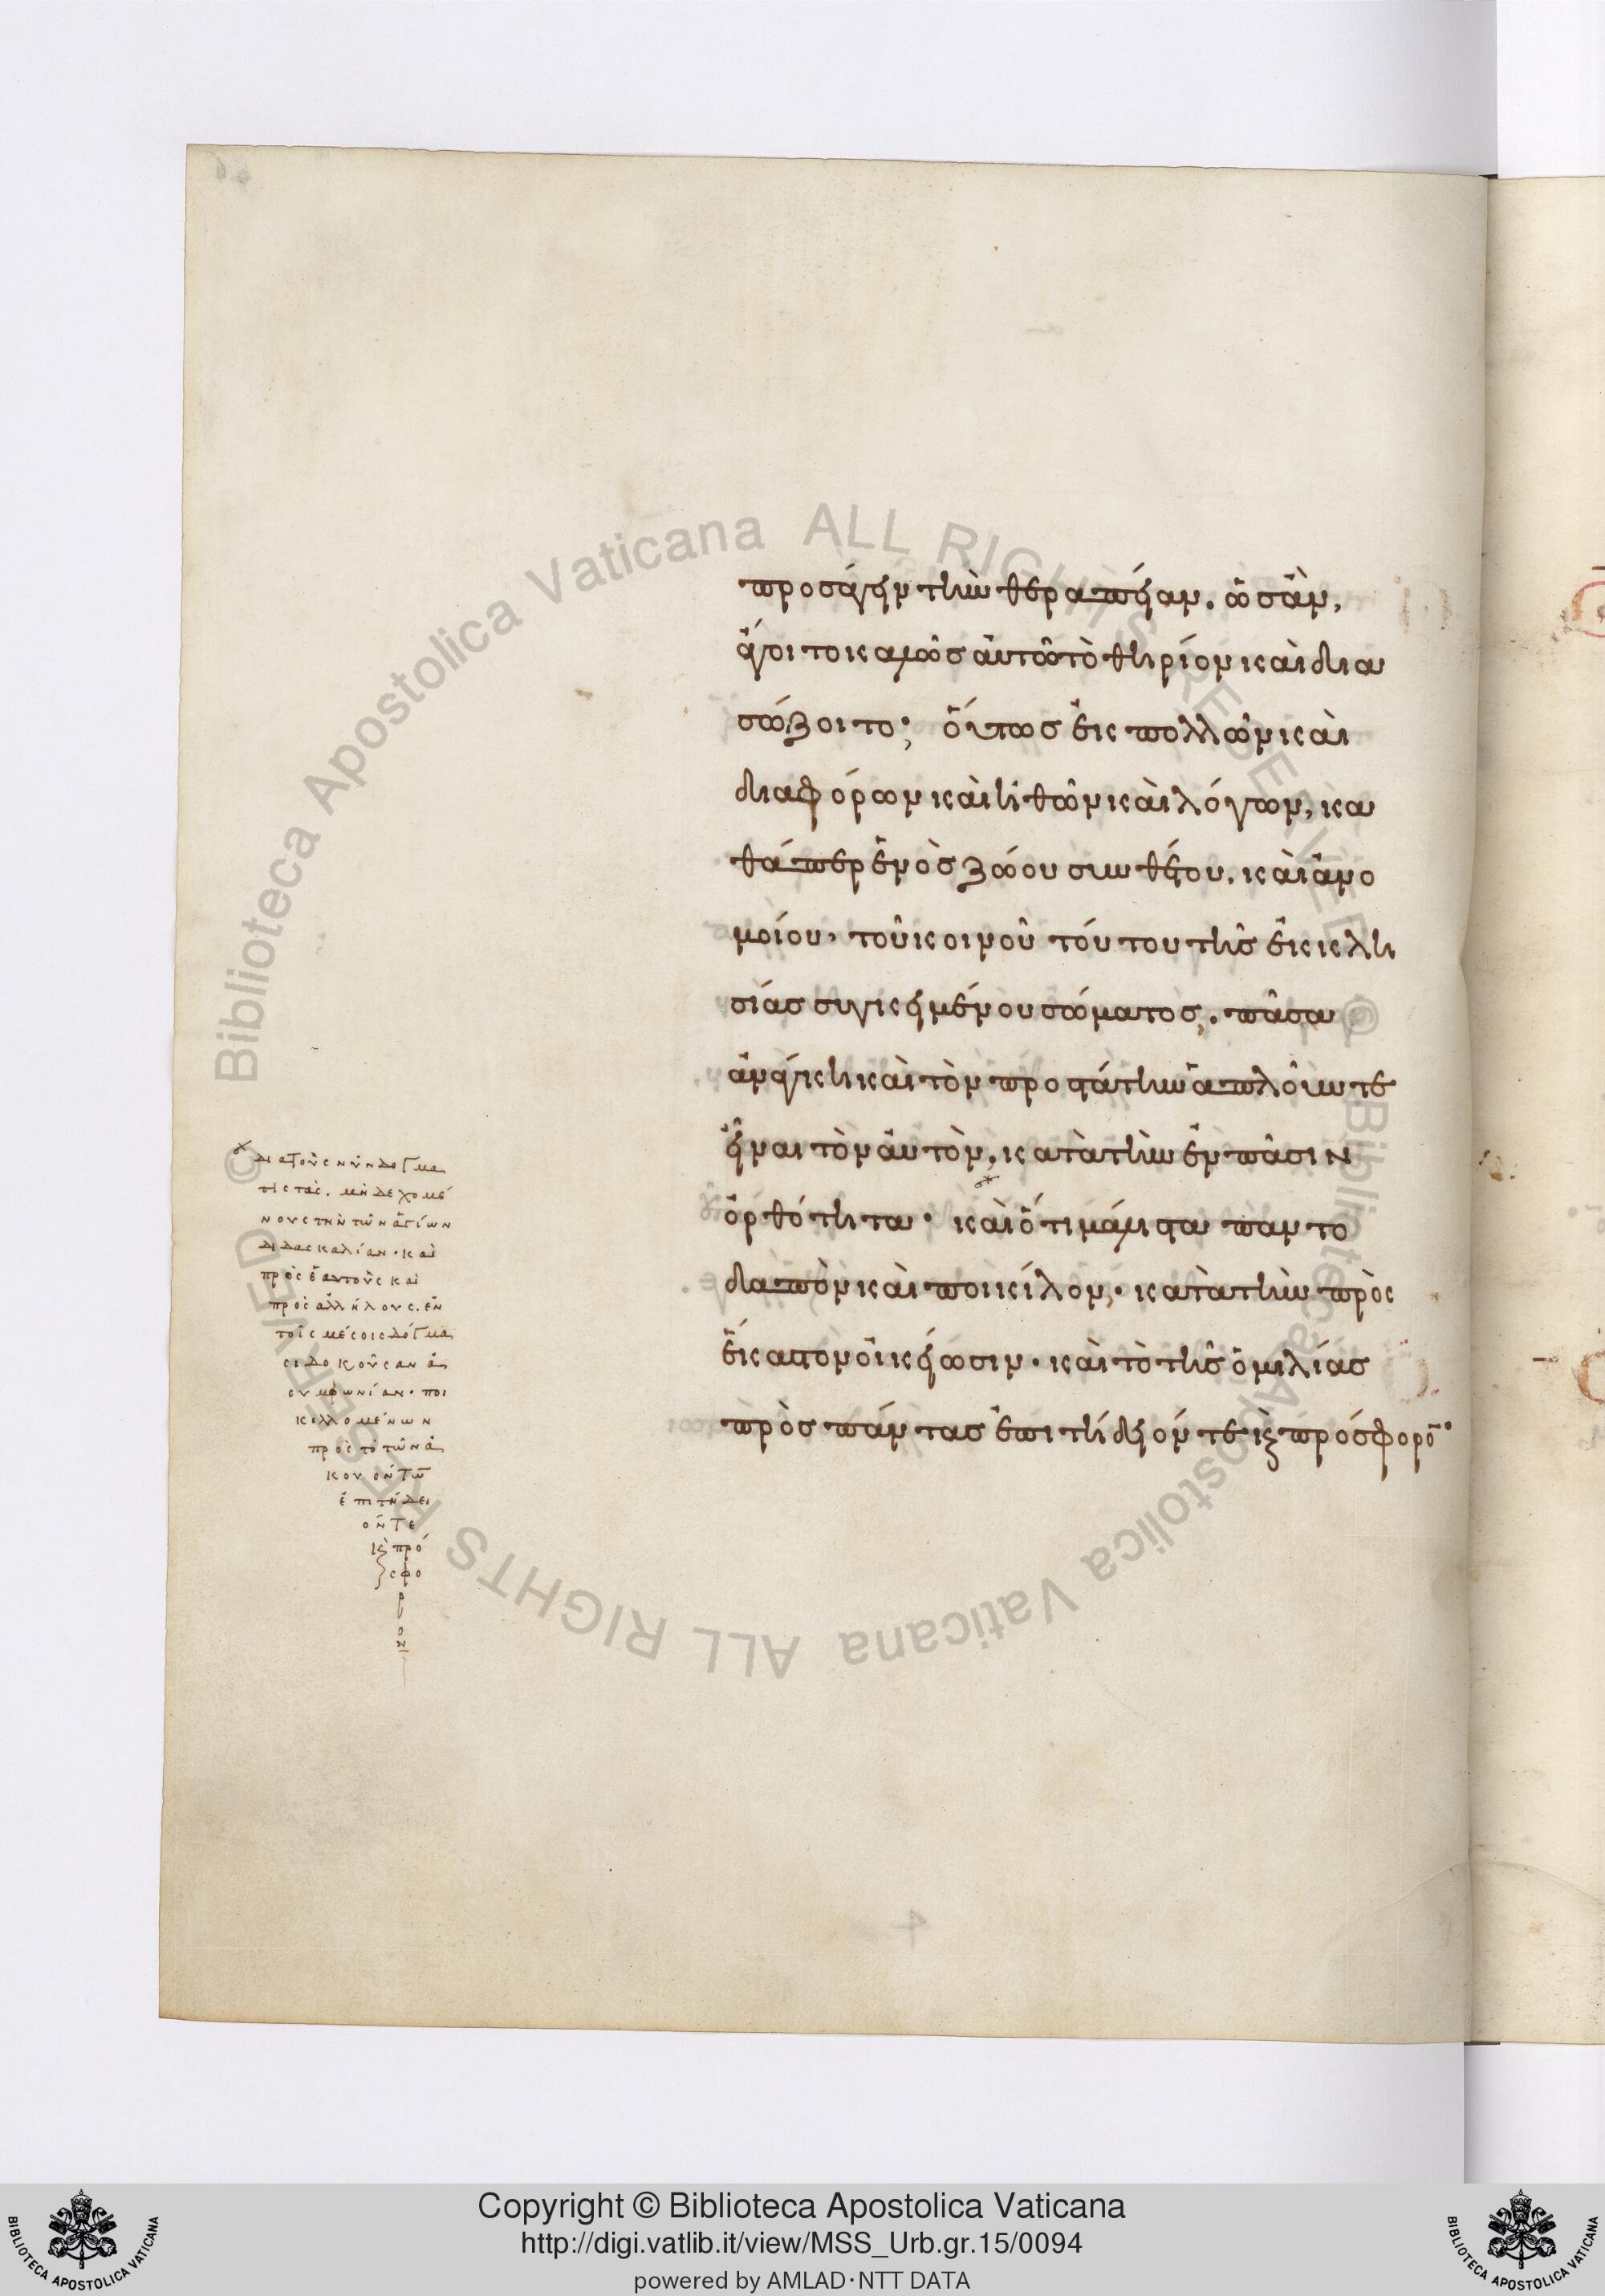 προσάγειν τὴν θεραπείαν. ὡς ἂν,
ἄγοιτο καλῶς αὐτῶ τὸ θηρίον καὶ δια
σώζοιτο; οὕτως ἐκ πολλῶν καὶ
διαφόρων καὶ ἠθῶν καὶ λόγων, κα
θάπερ ἑνὸς ζώου συνθέτου, καὶ ἀνο
μοίου, τοῦ κοινοῦ τούτου τῆς ἐκκλη
σίας συγκειμένου σώματος, πᾶσα
ἀνάγκη καὶ τὸν προστάτην ἁπλοῦν τε
εἶναι τὸν αὐτὸν, κατὰ τὴν ἐν πᾶσιν
ὀρθότητα· καὶ ὅτι μάλιστα παντο
δαπὸν καὶ ποικίλον, κατὰ τὴν πρὸς
ἕκαστον οἰκείωσιν· καὶ τὸ τῆς ὁμιλίας
πρὸς πάντας ἐπιτήδειόν τε κ πρόσφορο
διὰ τοὺς νῦν δογμα
τιστὰς. μὴ δεχομέ
νους τὴν τῶν ἁγίων
διδασκαλίαν. καὶ
πρὸς ἑαυτοὺς καὶ
πρὸς ἀλλήλους. ἐν
τοῖς μέσοις δόγμα
σι δοκοῦσαν ἀ
συμφωνίαν. ποι
κιλλομένων
πρὸς τὸ τῶν ἀ
κουόντω
ἐπιτήδει
όν τε
κ πρό
σφο
ρ
ο
ν
Copyright © Biblioteca Apostolica Vaticana
http://digi.vatlib.it/view/MSS_Urb.gr.15/0094
powered by AMLAD·NTT DATA
BIBLIOTECA APOSTOLICA VATICANA
BIBLIOTECA APOSTOLICA VATICANA
© Biblioteca Apostolica Vaticana ALL RIGHTS RESERVED
© Biblioteca Apostolica Vaticana ALL RIGHTS RESERVED